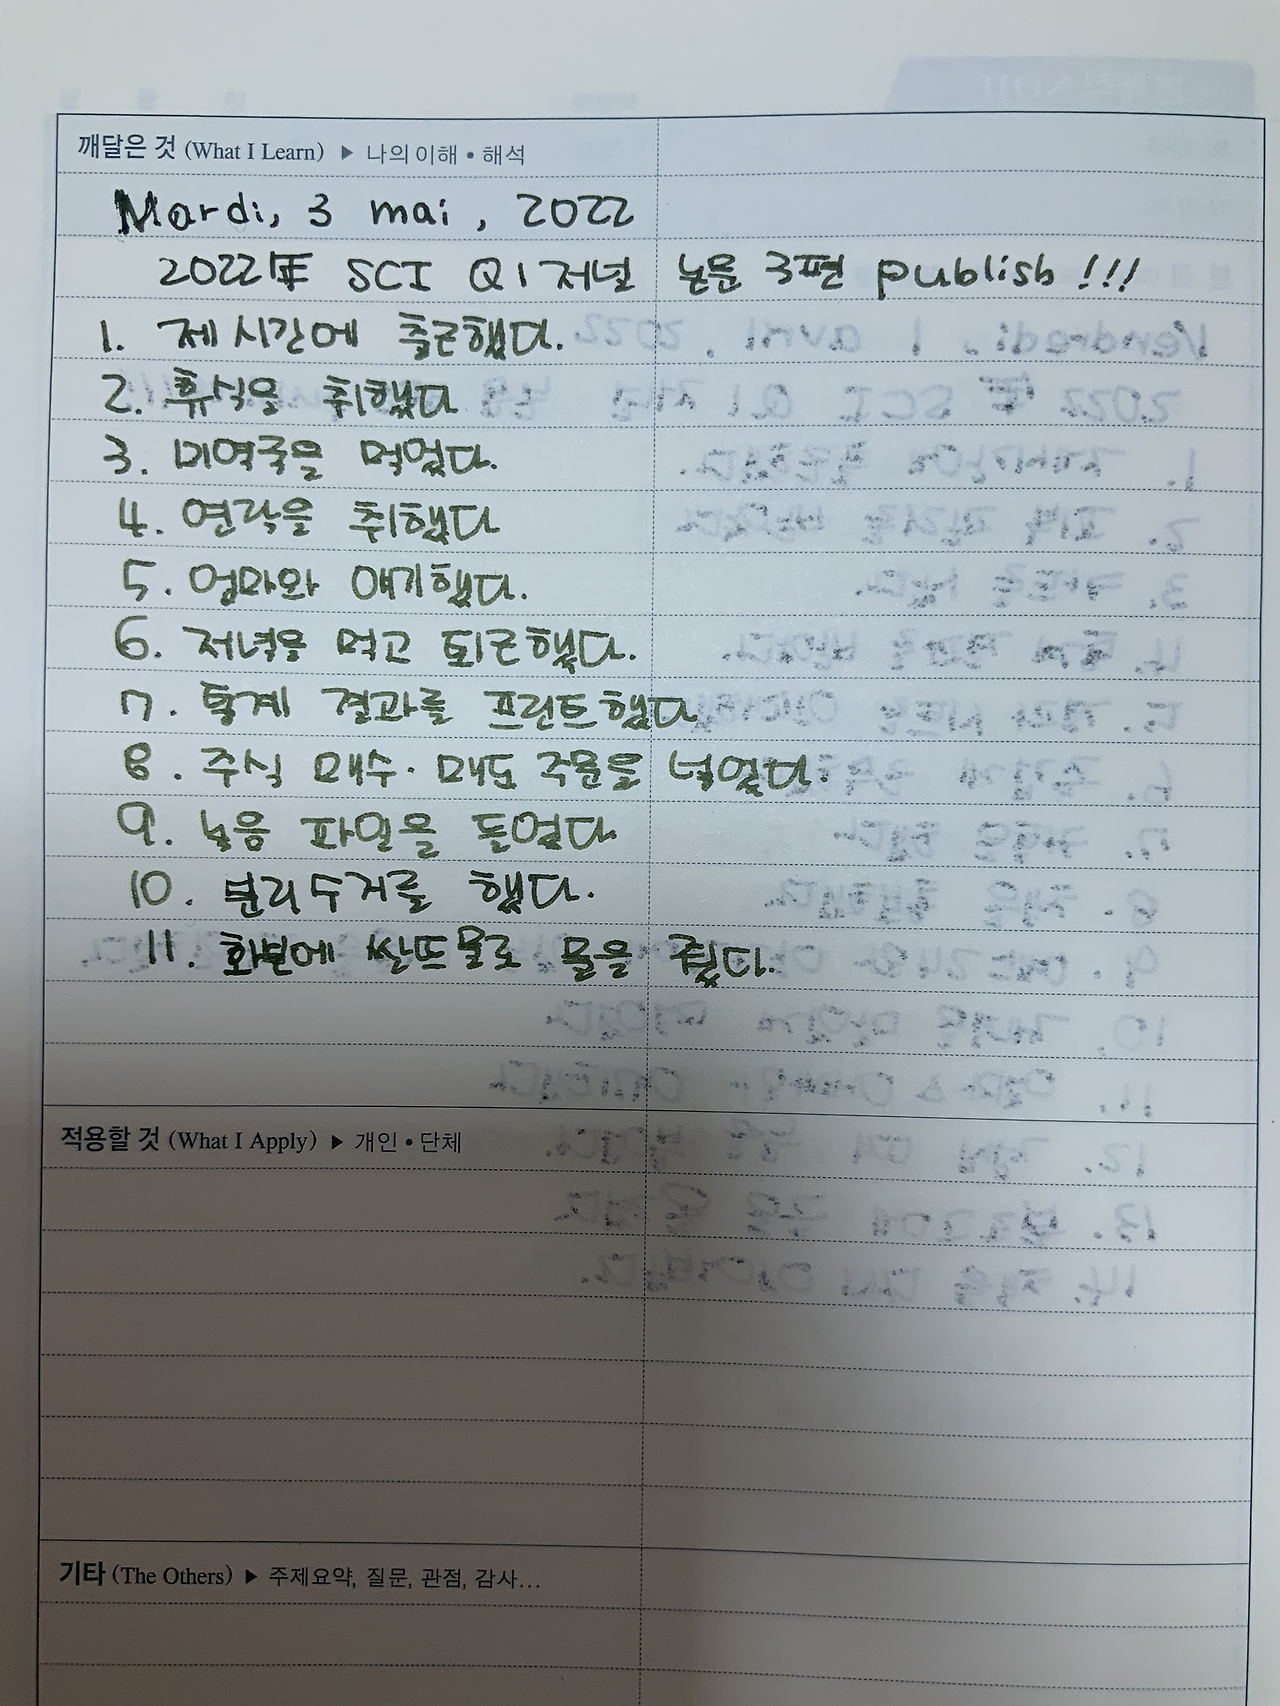 깨달은 것 (What I Learn) ▶ 나의 이해 • 해석
Mardi, 3 mai, 2022
2022年 SCI Q1 저널 논문 3편 publish!!!
1. 제시간에 출근했다.
2. 휴식을 취했다
3. 미역국을 먹었다.
4. 연락을 취했다
5. 엄마와 얘기했다.
6. 저녁을 먹고 퇴근했다.
7. 통계 결과를 프린트했다
8. 주식 매수·매도 주문을 넣었다.
9. 녹음 파일을 들었다
10. 분리수거를 했다.
11. 화분에 쌀뜨물로 물을 줬다.
적용할 것 (What I Apply) ▶ 개인 • 단체
기타 (The Others) ▶ 주제요약, 질문, 관점, 감사...